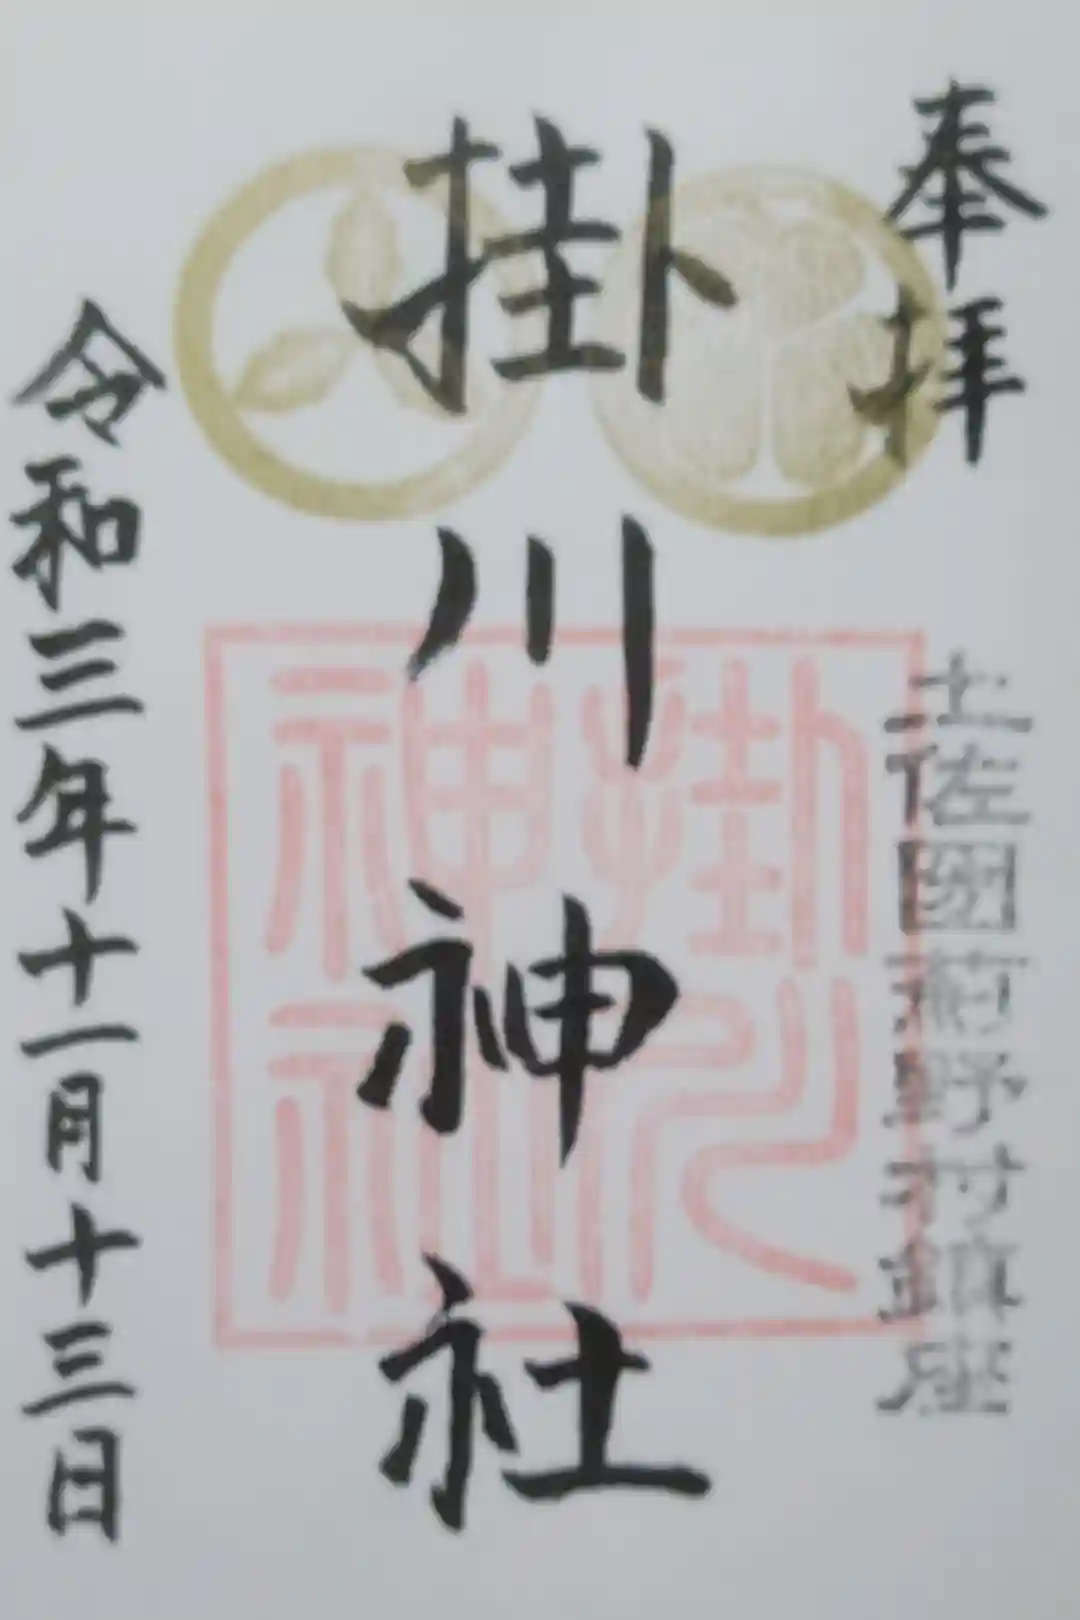 奉拝
土佐國薊野村鎮座
掛川神社
掛川神社
令和三年十一月十三日